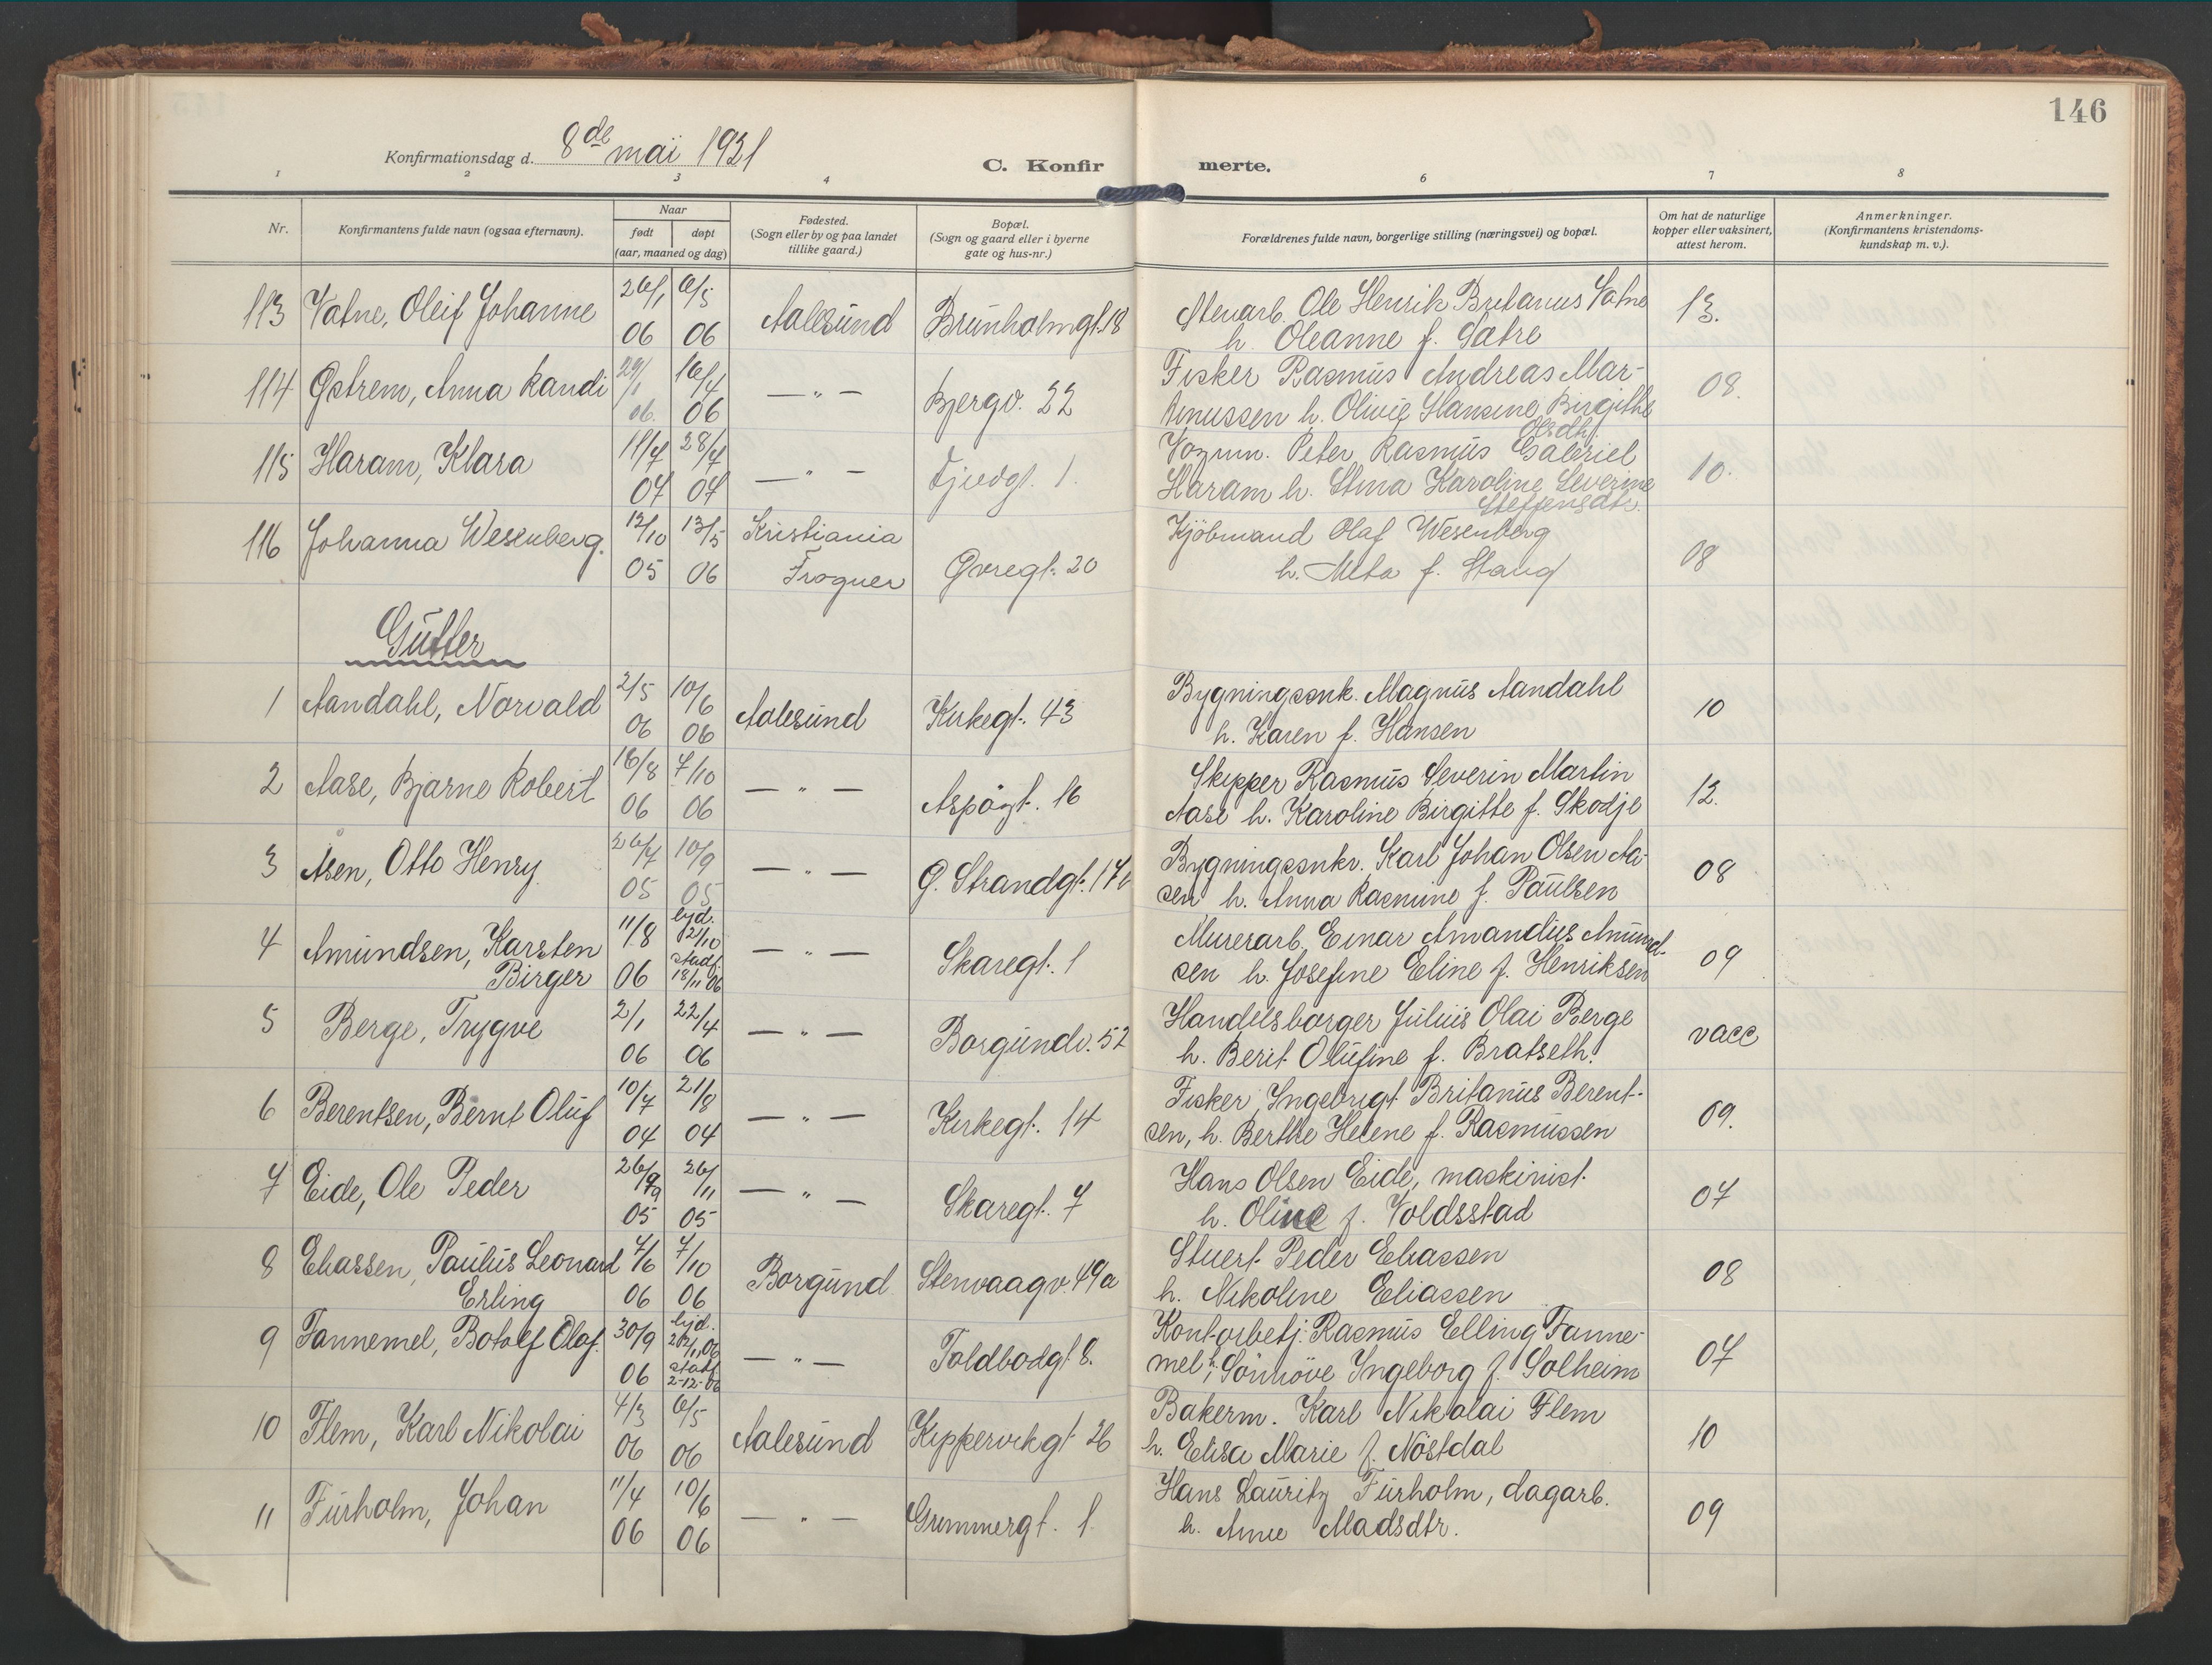 146
Konfirmationsdag d. 8de mai 1921
C. Konfirmerte.
1 2 3 4 6 7 8
Nr.
Konfirmantens fulde navn (ogsaa efternavn).
Naar
født døpt
(aar, maaned og dag)
Fødested.
(Sogn eller by og paa landet
tillike gaard.)
Bopæl.
(Sogn og gaard eller i byerne
gate og hus-nr.)
Forældrenes fulde navn, borgerlige stilling (næringsvei) og bopæl.
Om hat de naturlige
kopper eller vaksinert,
attest herom.
Anmerkninger.
(Konfirmantens kristendoms-
kundskap m. v.).
113 Vatne, Oleif Johanne 26/1 06 6/5 06 Aalesund Brunholmgt. 18
Stenarb. Ole Henrik Britanus Vatne
h. Oleanne f. Satre
13.
114 Østrem, Anna Randi 29/1 06. 16/4 06 — " — Bjergv. 22
Fisker Rasmus Andreas Mar-
tinussen h. Olivie Hansine Birgithe
Olsdtr.
08.
115 Haram, Klara 18/7 07 28/7 07 — " — Tjuvgt. 1.
Vognm. Peter Rasmus Gabriel
Haram h. Stina Karoline Severine
Steffensdtr.
10.
116 Johanna Wesenberg. 12/10 05 13/5 06 Kristiania
Frogner Øvregt. 20
Kjöbmand Olaf Wesenberg
h. Meta f. Stang
08
Gutter
1 Aandahl, Norvald 2/5 06 10/6 06 Aalesund Kirkegt. 43
Bygningssnk. Magnus Aandahl
h. Karen f. Hansen
10
2 Aase, Bjarne Robert 16/8 06 7/10 06 — " — Aspøgt. 16
Skipper Rasmus Severin Martin
Aase h. Karoline Birgitte f. Skodje
12.
3 Åsen, Otto Henry 26/7 05 10/9 05 — " — Ø. Strandgt. 17b
Bygningssnkr. Karl Johan Olsen Aa-
sen h. Anna Rasmine f. Paulsen
08
4 Amundsen, Karsten
Birger 11/8 06 hjd. 12/10 stadf. 18/11 06 — " — Skaregt. 1
Murerarb. Einar Amandus Amund-
sen h. Josefine Eline f. Henriksen
09
5 Berge, Trygve 2/1 06 22/4 06 — " — Borgundv. 52
Handelsborger Julius Olai Berge
h. Berit Olufine f. Bratseth.
vacc
6 Berentsen, Bernt Oluf 10/7 04 21/8 04 — " — Kirkegt. 14
Fisker Ingebrigt Britanus Berent-
sen, h. Berthe Helene f. Rasmussen
09.
7 Eide, Ole Peder 26/9 05 26/11 05 — " — Skaregt. 7
Hans Olsen Eide, maskinist.
h. Oline f. Voldsstad
07
8 Eliassen, Paulus Leonard
Erling 7/6 06 7/10 06 Borgund Stenvaagv. 49a
Stuert. Peder Eliassen
h. Nikoline Eliassen
08
9 Fannemel, Botolf Olaf. 30/9 06 hjd. /11 06 stadf. 2-12-06 — " — Toldbodgt 8.
Kontorbetj. Rasmus Elling Fanne-
mel h. Sönnöve Ingeborg f. Solheim
07
10 Flem, Karl Nikolai 4/3 06 6/5 06 Aalesund Kippervikgt 26
Bakerm. Karl Nikolai Flem
h. Elisa Marie f. Nöstdal
10
11 Furholm, Johan 11/4 06 10/6 06 — " — Grimmergt. 1.
Hans Lauritz Furholm, dagarb.
h. Anne Madsdtr.
09